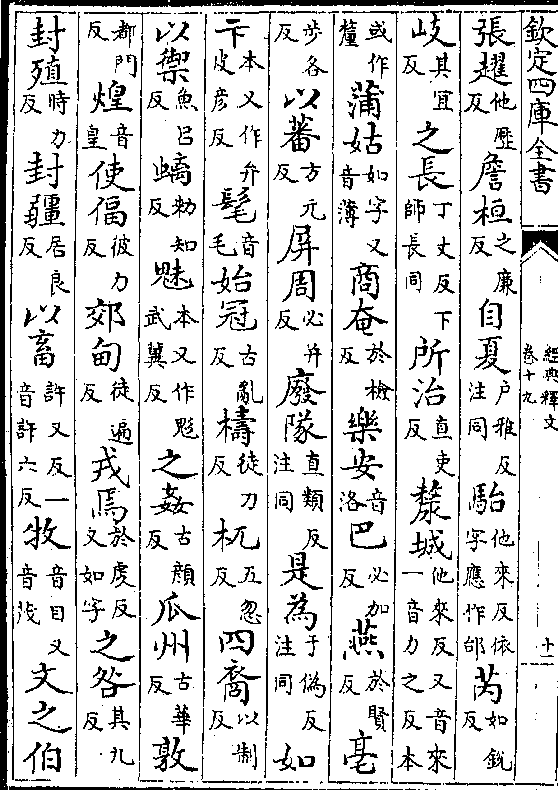 欽定四庫全書
經典釋文
卷十九
十一
張趯他歷反詹桓之廉反自夏戶雅反注同駘他來反依字應作邰芮如銳反
岐其宜反之長丁丈反下師長同所治直吏反斄城他來反又音來一音力之反本
或作釐蒲姑如字又音薄商奄於檢反樂安音洛巴必加反燕於賢反亳
步各反以蕃方元反屏周必井反廢隊直類反注同是為于偽反注同如
卞本又作弁皮彥反髦音毛始冠古亂反檮徒刀反杌五忽反四裔以制反
以禦魚呂反螭勑知反魅本又作鬽武冀反之姦古顏反瓜州古華反敦
都門反煌音皇使偪彼力反郊甸徒遍反戎焉於虔反又如字之咎其九反
封殖時力反封疆居良反以畜許又反一音許六反牧音目又音茂文之伯